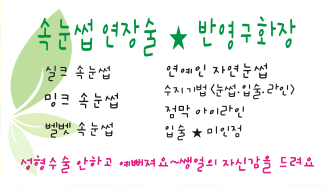 속눈썹 연장술 ★ 반영구화장
실크 속눈썹
밍크 속눈썹
벨벳 속눈썹
연예인 자연눈썹
수지기법<눈썹.입술.라인>
점막 아이라인
입술 ★ 미인점
성형수술 안하고 예뻐져요~쌩얼의 자신감을 드려요